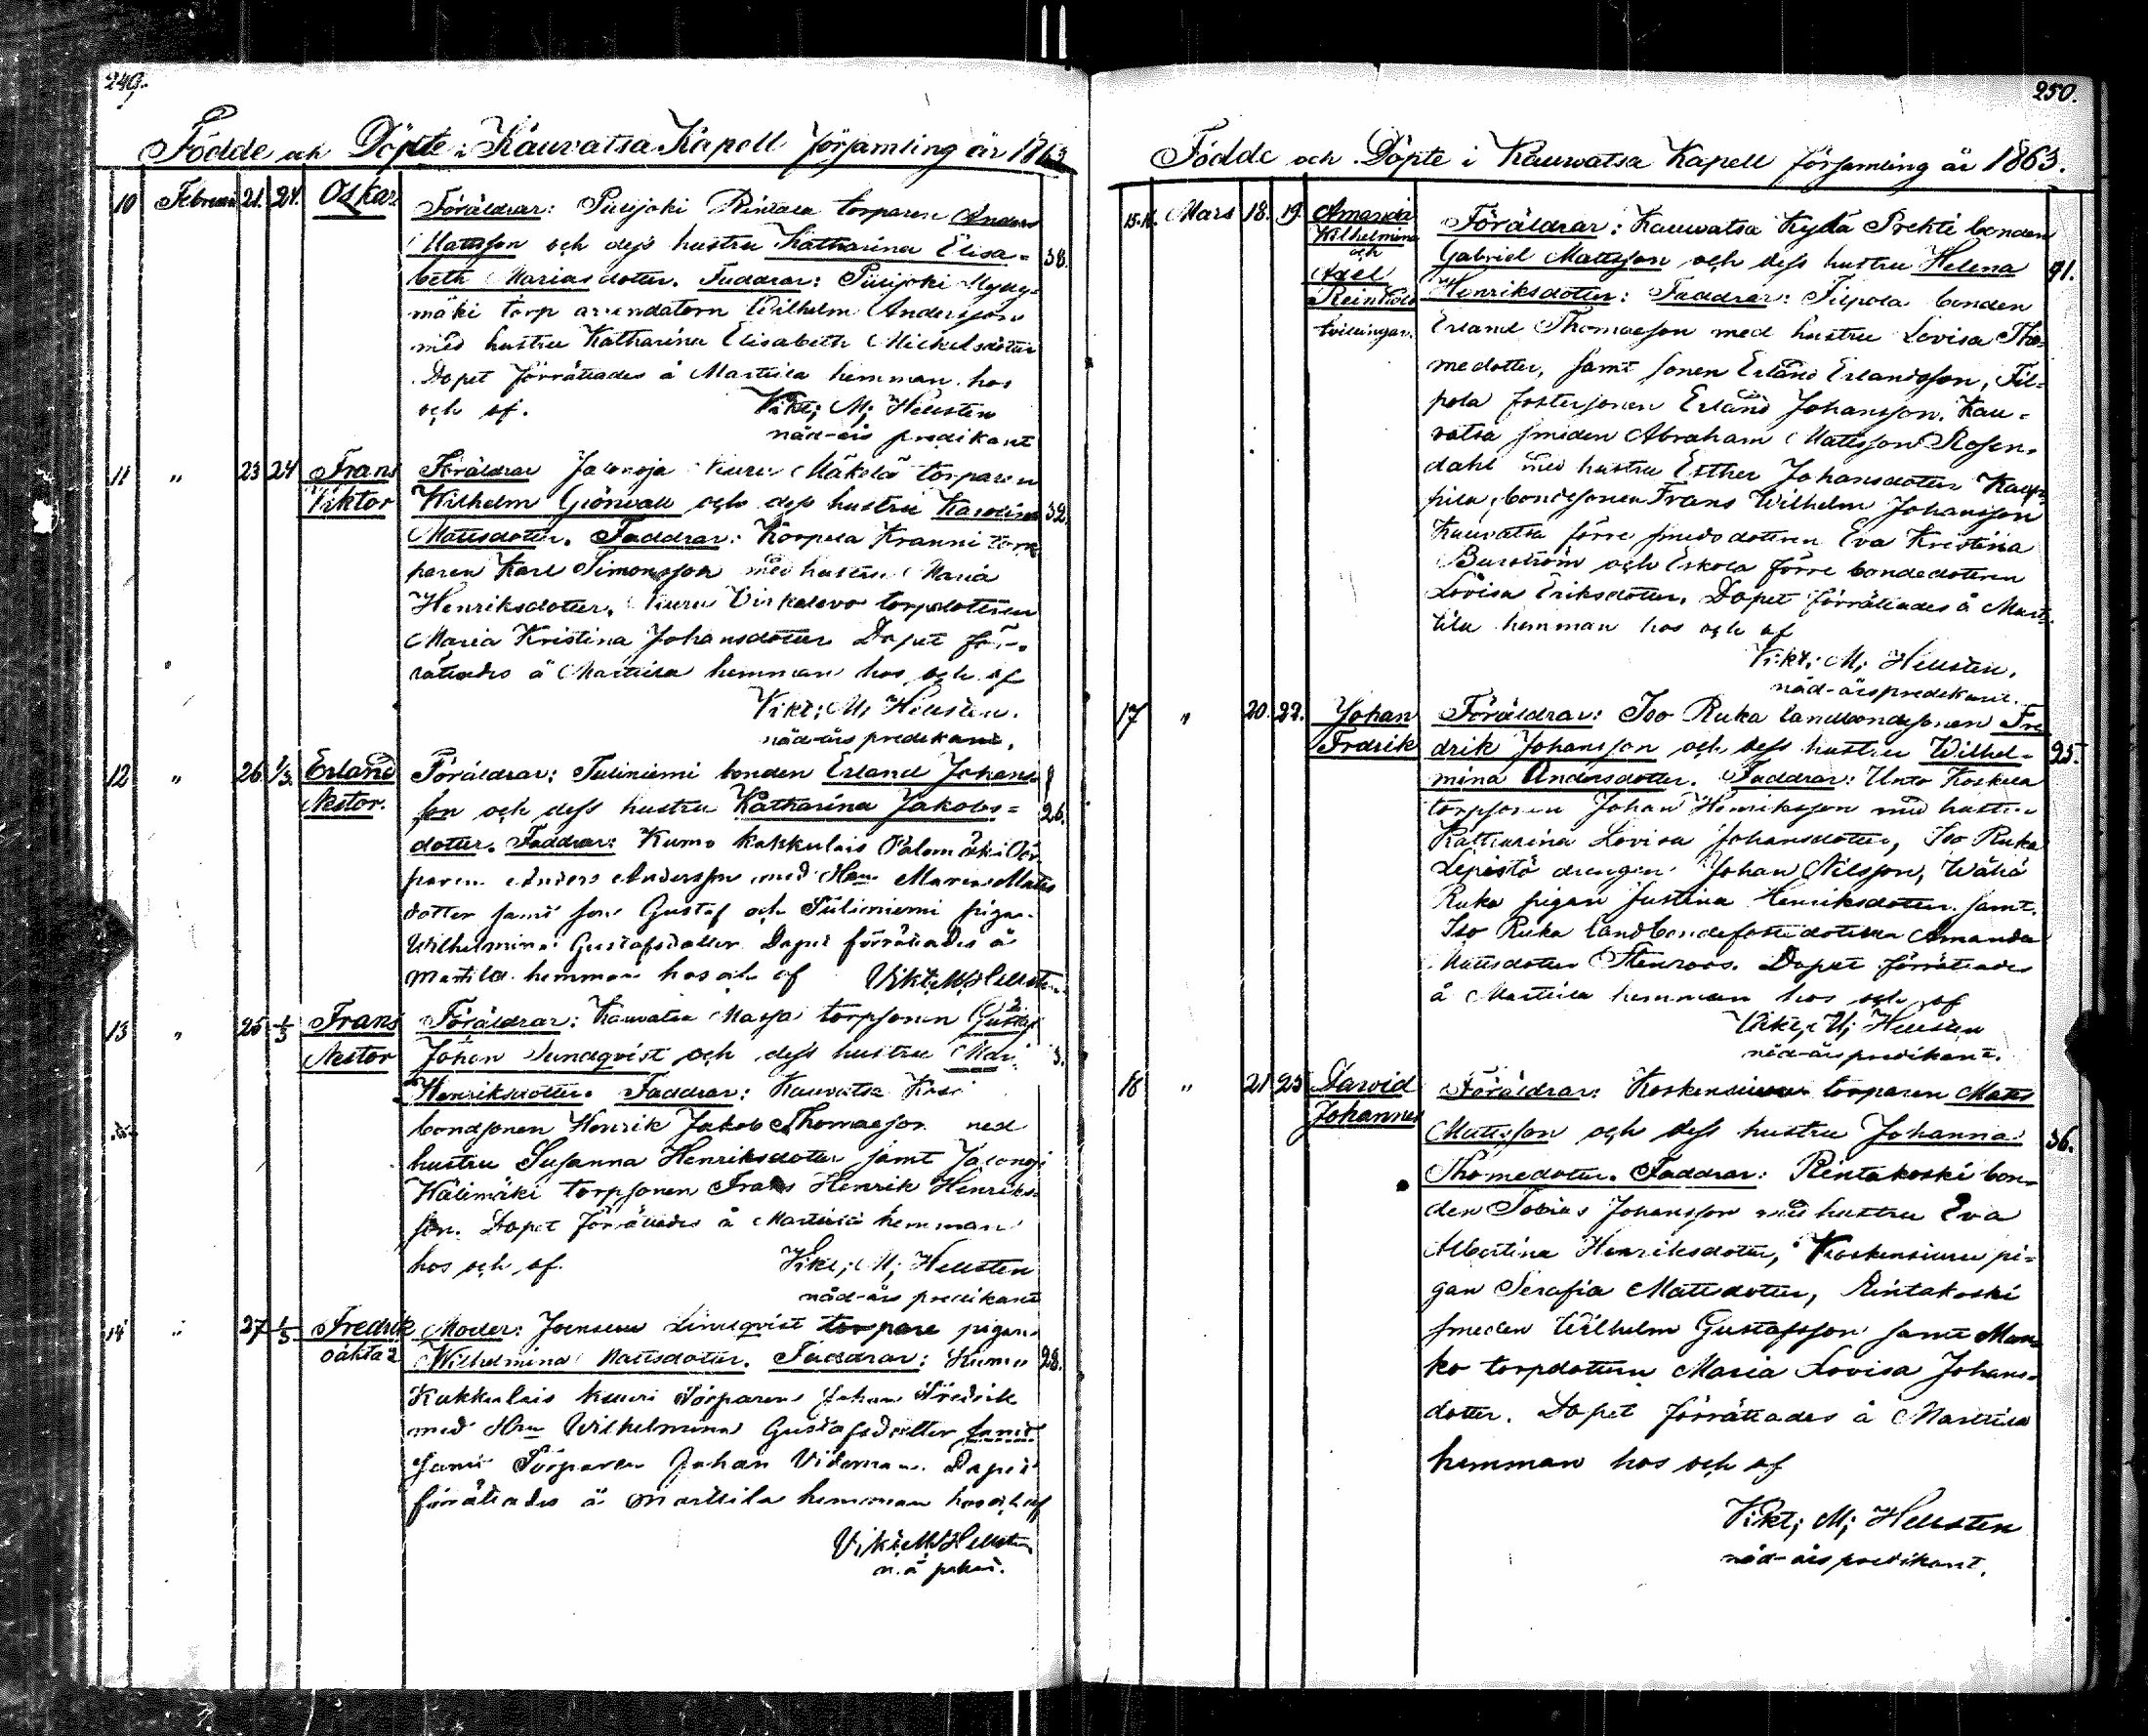 249.
Födde och Döpte i Kauvatsa Kapell församling år 1863
10 Februari 21. 24. Oskar Föräldrar: Puujoki Rintala torparen Anders
Mattsson och dess hustru Katharina Elisa= 38.
beth Mariasdotter. Faddrar: Puujoki Myllymäki
torp arrendatorn Wilhelm Andersson
med hustru Katharina Elisabeth Mickelsdotter
Dopet förrättades å Marttila hemman hos
och af. Vikt; M; Hellsten
nåd-års predikant
11 " 23 24 Frans Föräldrar Jalonoja Mäkelä torparen
Viktor Wilhelm Grönvall och dess hustru Karolina 32.
Mattsdotter. Faddrar: Korpela Kranni torparen
Karl Simonsson med hustru Maria
Henriksdotter, torpdottren
Maria Kristina Johansdotter Dopet för=
rättades å Marttila hemman hos och af
Vikt; M; Hellsten.
nåd-års predikant.
12 " 26 1/3. Erland Föräldrar: Tuliniemi bonden Erland Johans
Nestor. son och dess hustru Katharina Jakobs= 26.
dotter. Faddrar: Kumo Kakkulais Palomäki Tor
paren Anders Andersson med Hu Maria Matts
dotter samt son Gustaf och Tuliniemi pigan
Wilhelmina Gustafsdotter Dopet förrättades å
Martila hemman hos och af Vikt. M. Hellsten
13 " 25 1/3 Frans Föräldrar: Kauvatsa torpsonen Gustaf
Nestor Johan Sundqvist och dess hustru 3.
Henriksdotter. Faddrar: Kauvatsa
bondsonen Henrik Jakob Thomasson med
hustru Susanna Henriksdotter samt Jalonoja
Välimäki torpsonen Frans Henrik Henriks=
son. Dopet förrättades å Marttila hemman
hos och af. Vikt; M; Hellsten
nåd-års predikant
14 " 27 1/3 Fredrik Moder: Lindqvist torpare pigan
oäkta 2 Wilhelmina Mattsdotter. Faddrar: Kumo 28.
Kakkulais Torparen Johan Fredrik
med Hu Wilhelmina Gustafsdotter samt
samt Torparen Johan Dopet
förrättades å Marttila hemman hos och af
Vikt. M. Hellsten
n. å predikt.
250.
Födde och Döpte i Kauwatsa Kapell församling år 1863.
15.16. Mars 18. 19. Amanda Föräldrar: Kauwatsa Kylä Prekti bonden
Wilhelmina Gabriel Mattsson och dess hustru Helena 91.
och
Axel Henriksdotter: Faddrar: Filpola bonden
Reinhold
tvillingar. Erland Thomasson med hustru Lovisa Tho=
medotter, samt sonen Erland Erlandsson, Fil=
pola fostersonen Erland Johansson, Kau=
vatsa smeden Abraham Mattsson Rosen=
dahl med hustru Esther Johansdotter
bondesonen Frans Wilhelm Johansson
Kauvatsa förre smedsdottren Eva Kristina
Burström och Eskola förre bondedottren
Lovisa Eriksdotter. Dopet förrättades å Mart=
tila hemman hos och af
Vikt; M; Hellsten.
nåd-årspredikant.
17 " 20. 22. Johan Föräldrar: Iso Ruka landbondsonen Fre
Fredrik drik Johansson och dess hustru Wilhel= 25.
mina Andersdotter. Faddrar: Unto Koskela
torpsonen Johan Henriksson med hustru
Katharina Lovisa Johansdotter, Iso Ruka
Lepistö drengen Johan Nilsson, Wähä
Ruka pigan Justina Henriksdotter samt.
Iso Ruka landbondefosterdottren Amanda
Mattsdotter Stenroos. Dopet förrättades
å Marttila hemman hos och af
Vikt; M; Hellsten
nåd-års predikant.
18 " 21 25 Dawid Föräldrar: torparen Matts
Johannes Mattsson och dess hustru Johanna 36.
Thomedotter. Faddrar: Rintakoski bon=
den Tobias Johansson med hustru Eva
Albertina Henriksdotter, Koskensuu pi=
gan Serafia Mattsdotter, Rintakoski
smeden Wilhelm Gustafsson samt Man=
ko torpdottren Maria Lovisa Johans=
dotter. Dopet förrättades å Marttila
hemman hos och af
Vikt; M; Hellsten
nåd-års predikant.